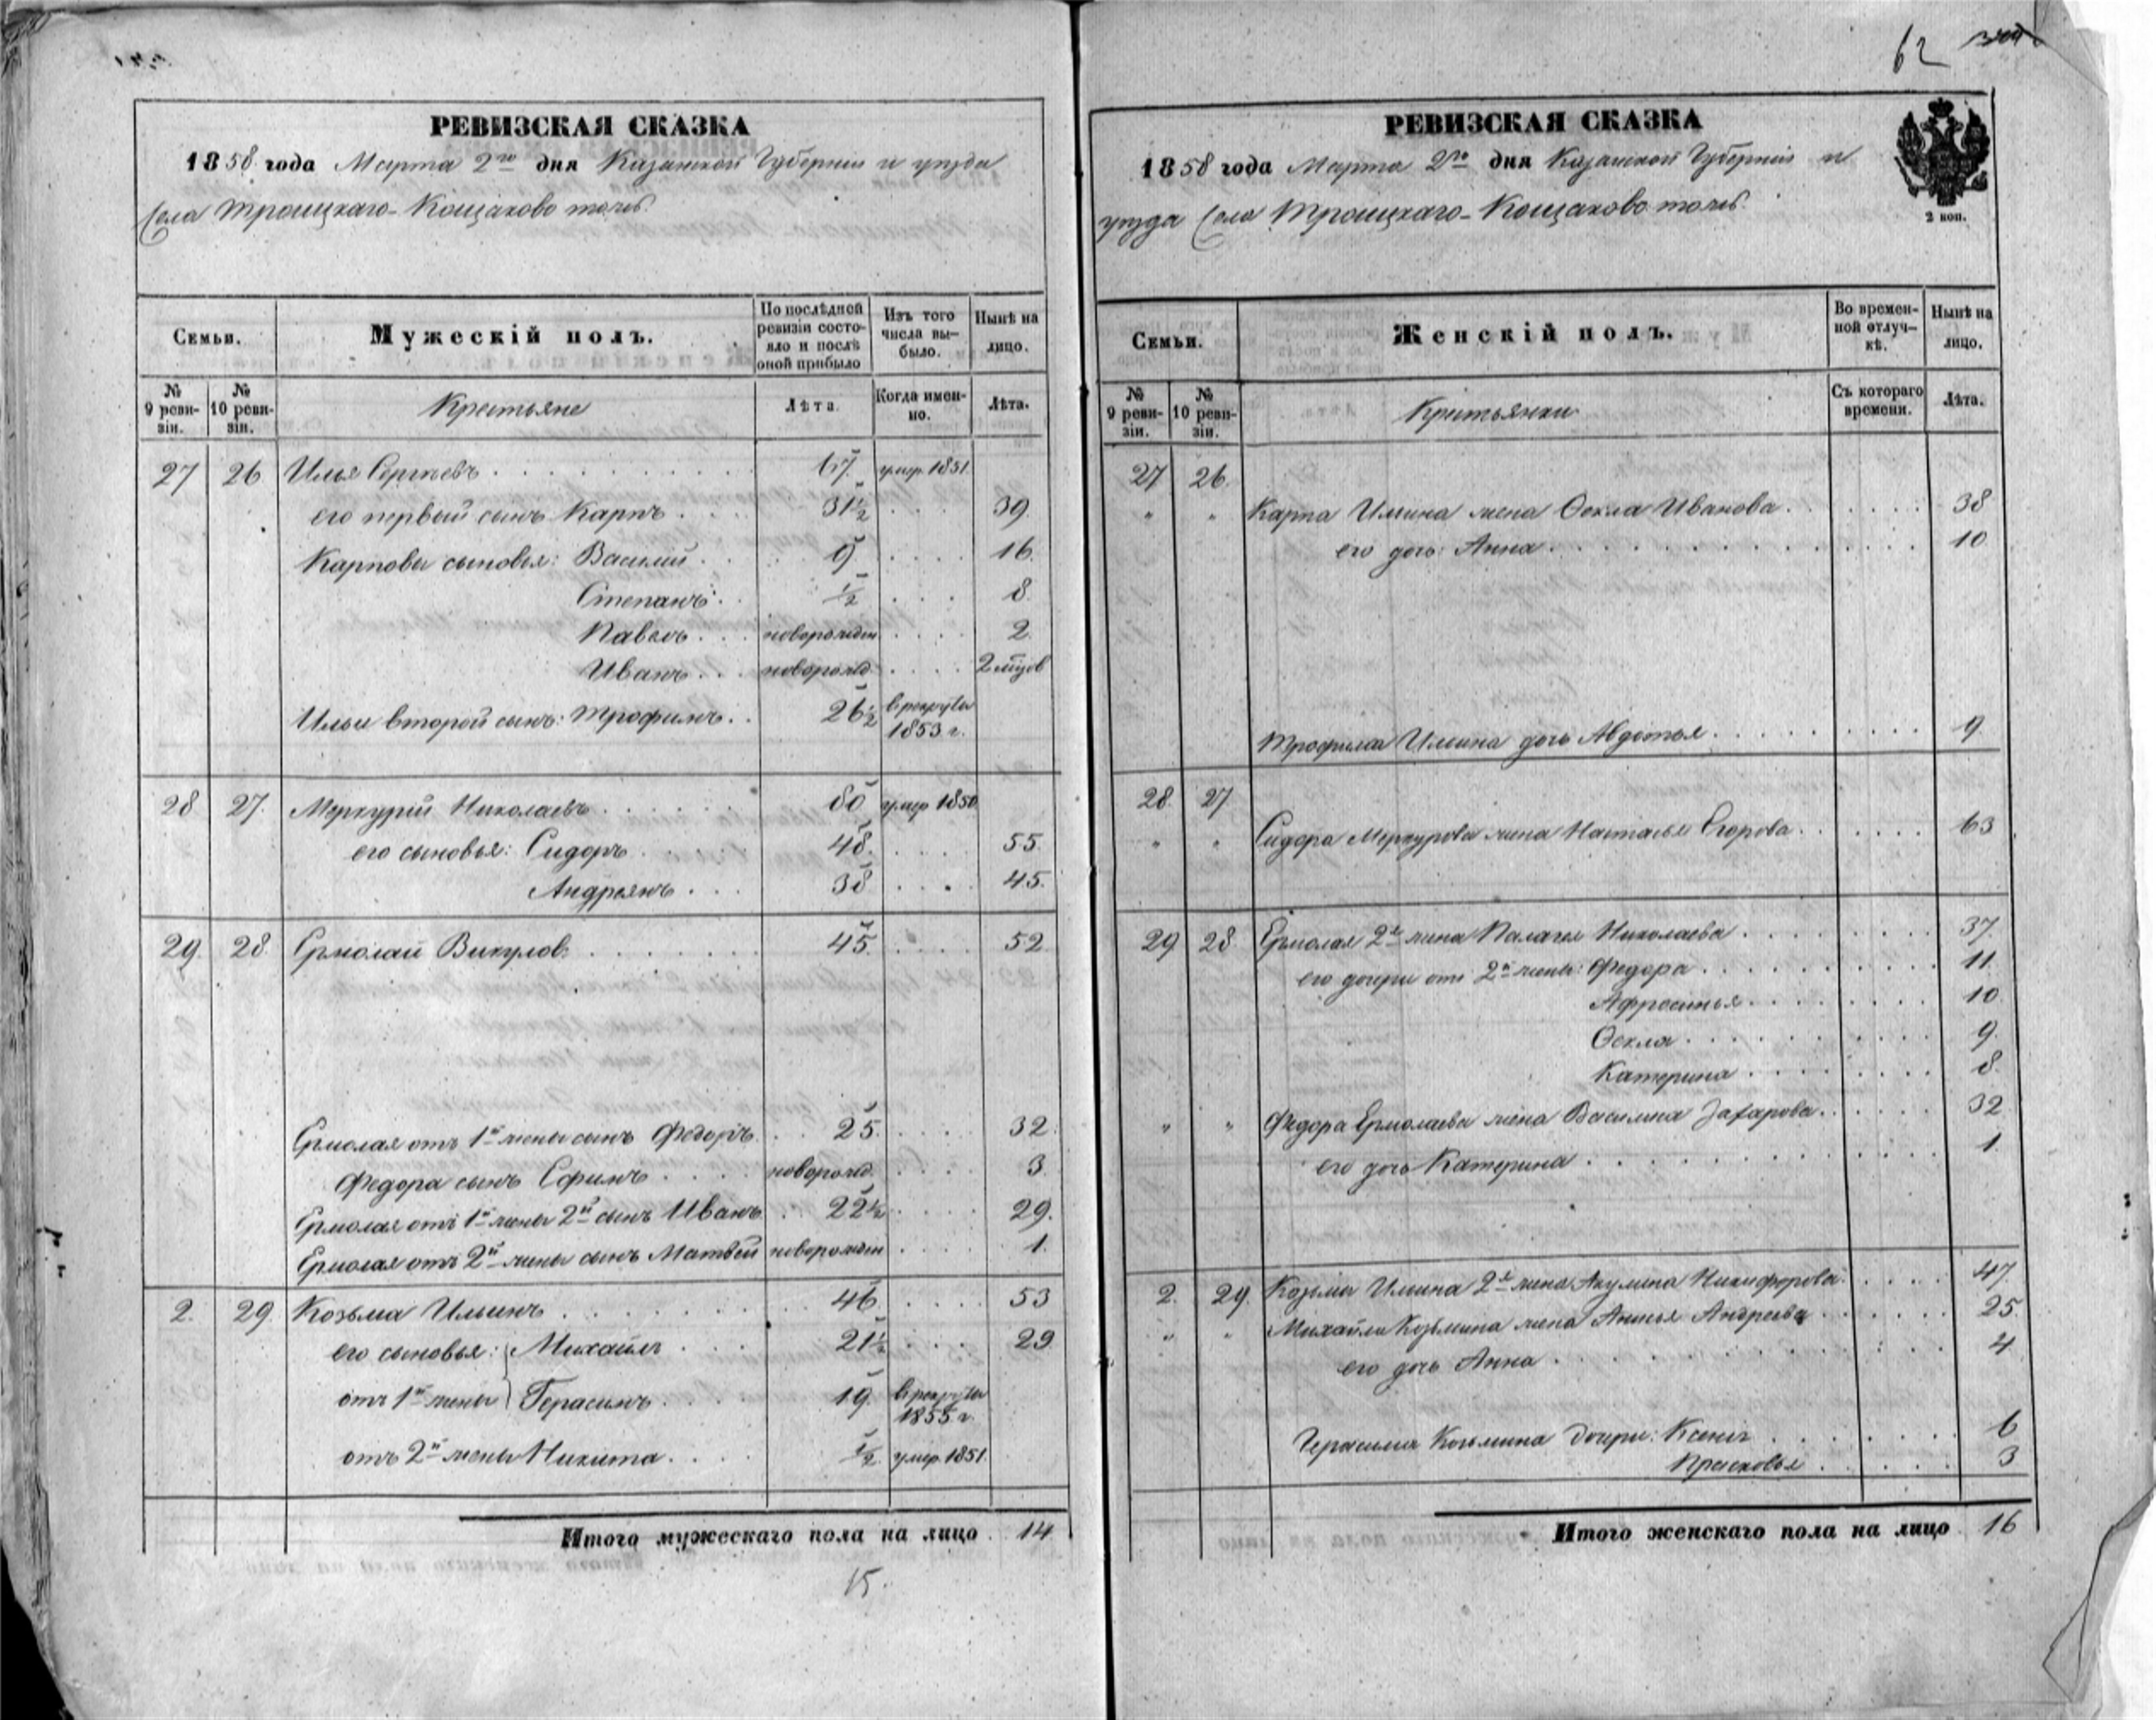 РЕВИЗСКАЯ СКАЗКА
1858 года Марта 2го дня Казанской Губерніи и уѣзда
Села Троицкаго-Кощаково тожъ.
Семьи.
Мужескій полъ.
По послѣдней ревизіи состояло и послѣ оной прибыло
Изъ того числа выбыло.
Нынѣ на лицо.
№ 9 ревизіи.
№ 10 ревизіи.
Крестьяне
Лѣта.
Когда именно.
Лѣта.
27 26 Илья Сергѣевъ 67. умер. 1851.
его первый сынъ Карпъ 31½ 39.
Карповы сыновья: Василий 9 16.
Степанъ ½ 8.
Павелъ новорожден 2.
Иванъ новорожд. 2 мѣцов
Ильи второй сынъ: Трофимъ 26½ в рекруты 1853 г.
28 27. Меркурій Николаевъ 80 умер. 1850
его сыновья: Сидоръ 48. 55.
Андреянъ 38 45.
29. 28. Ермолай Викулов. 45. 52.
Ермолая отъ 1й жены сынъ Федоръ 25. 32.
Федора сынъ Ефимъ новорожд. 3.
Ермолая отъ 1й жены 2й сынъ Иванъ 22½ 29.
Ермолая отъ 2й жены сынъ Матвей новорожден 1.
2. 29. Козьма Ильинъ 46 53
его сыновья: Михайлъ 21½ 29
отъ 1й жены Герасимъ 19. в рекруты 1855 г.
отъ 2й жены Никита ½ умер. 1851.
Итого мужескаго пола на лицо 14
15.
62
РЕВИЗСКАЯ СКАЗКА
1858 года Марта 2го дня Казанской Губерніи и
уѣзда Села Троицкаго-Кощаково тожъ.
2 коп.
Семьи.
Женскій полъ.
Во временной отлучкѣ.
Нынѣ на лицо.
№ 9 ревизіи.
№ 10 ревизіи.
Крестьянки
Съ котораго времени.
Лѣта.
27 26.
" " Карпа Ильина жена Ѳекла Иванова 38
его дочь: Анна 10
Трофима Ильина дочь Авдотья 9
28. 27
" " Сидора Меркурова жена Настасья Егорова 63
29 28 Ермолая 2я жена Палагея Николаева 37.
его дочери отъ 2й жены: Федора 11.
Афросинья 10
Ѳекла 9.
Катерина 8.
" " Федора Ермолаева жена Василиса Захарова 32
его дочь Катерина 1.
2. 29. Козьмы Ильина 2я жена Акулина Никифорова 47
" " Михайлы Козьмина жена Анисья Андреева 25.
его дочь Анна 4
Герасима Козьмина дочери: Ксенія 6
Прасковья 3
Итого женскаго пола на лицо 16